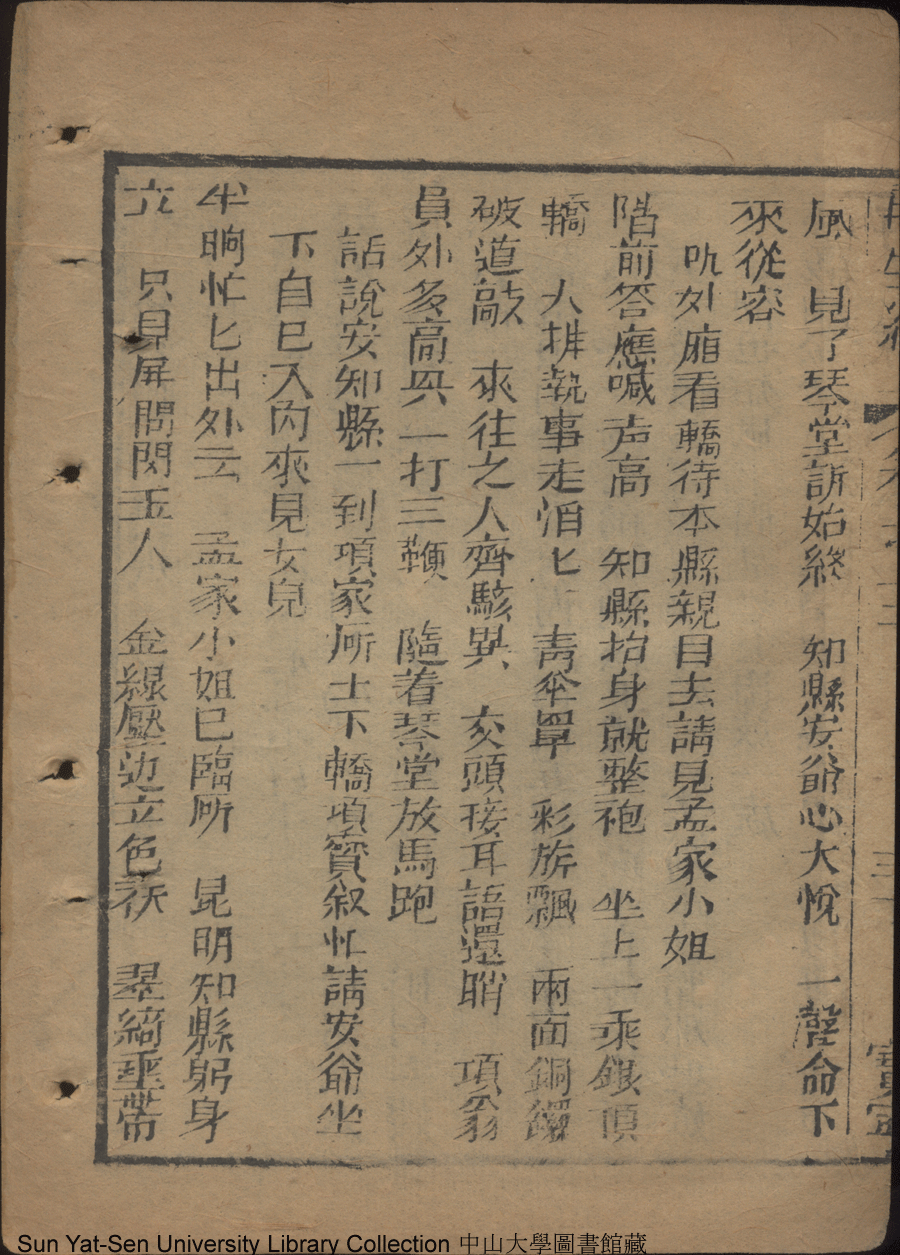 風　見了琴堂訴始終　知縣安爺心大悅　一聲命下
來從容
吮外廂看轎待本縣親目去請見孟家小姐
階前答應喊声高　知縣抬身就整袍　坐上一乘銀頂
轎　人排執事走滔匕　青傘罩　彩旂飄　兩面銅鑼
破道敲　來往之人齊駭異　交頭接耳語還哨　項翁
員外多高兴　一打三鞭　隨着琴堂放馬跑
話說安知縣一到項家所士下轎項賓叙忙請安爺坐
下自已入內來見女兒
半晌忙匕出外云　孟家小姐已臨所　昆明知縣躬身
立　只見屏問閃玉人　金線壓边立色袄　翠綺垂帶
Sun Yat-Sen University Library Collection 中山大學圖書館藏